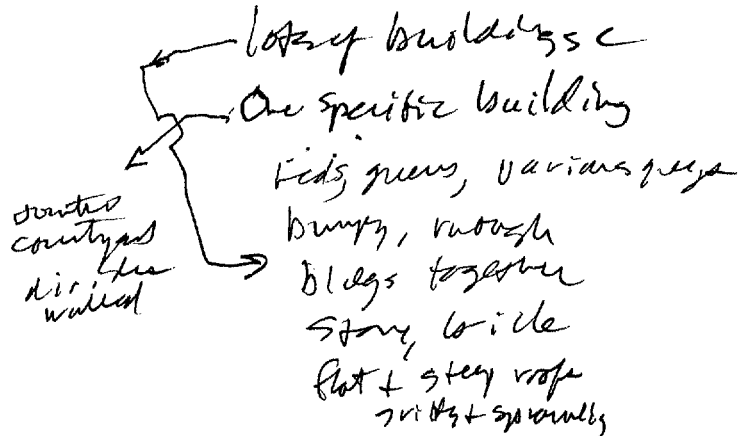 lots of buildings c
One specific building
reds, greens, various greys
bumpy, rough
bldgs together
stone, brick
flat + steep roofs
gritty + sprawling
courtyard
walled